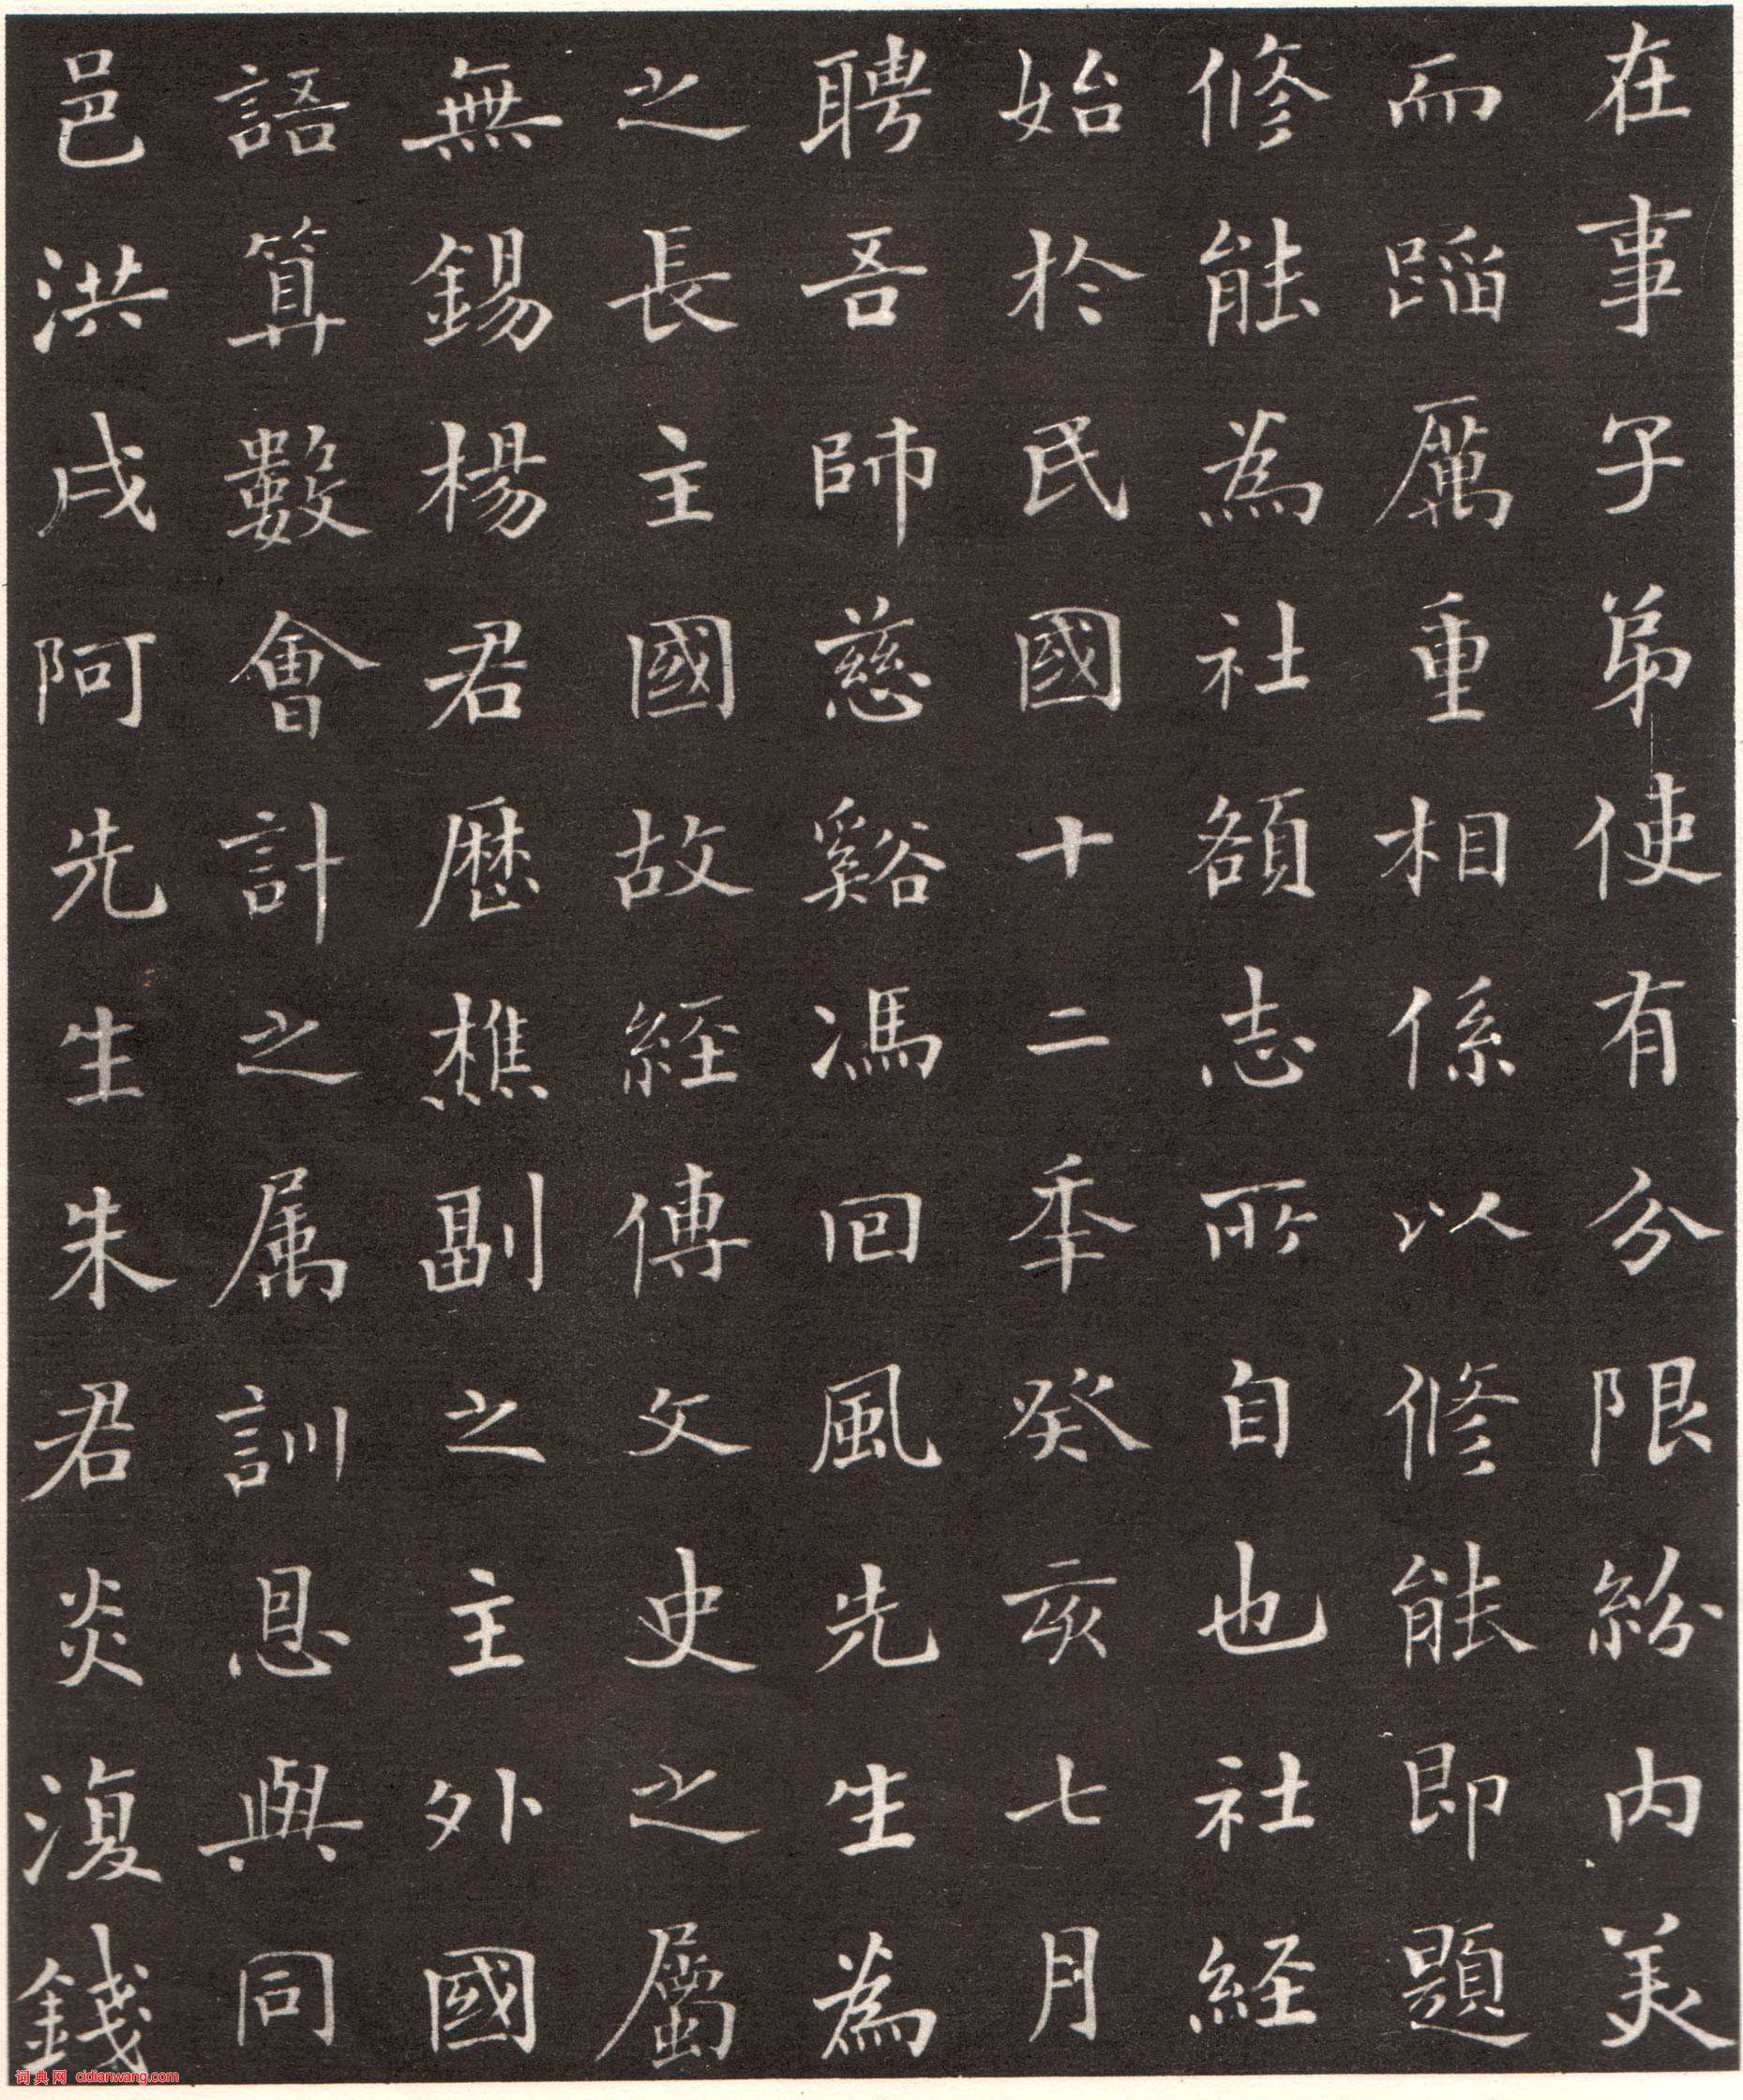 在事子弟使有分限紛内美
而蹈厲重相係以修能即題
修能為社額志所自也社經
始於民國十二季癸亥七月
聘吾師慈谿馮回風先生為
之長主國故經傳文史之屬
無錫楊君歷樵副之主外國
語算數會計之属訓息與同
邑洪戌阿先生朱君炎復錢
词典网 cidianwang.com